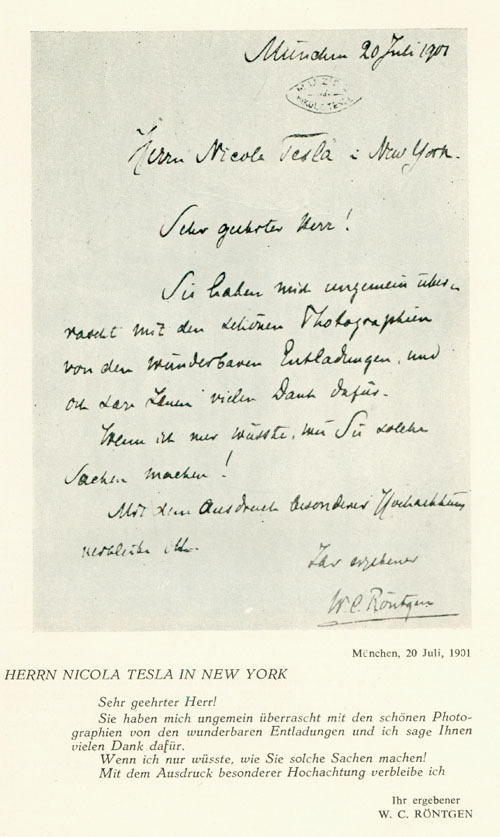 München 20 Juli 1901
Herrn Nicola Tesla i New York.
Sehr geehrter Herr!
Sie haben mich ungemein über-
rascht mit den schönen Photographien
von den wunderbaren Entladungen, und
ich sage Ihnen vielen Dank dafür.
Wenn ich nur wüsste, wie Sie solche
Sachen machen!
Mit dem Ausdruck besonderer Hochachtung
verbleibe ich
Ihr ergebener
W. C. Röntgen
München, 20 Juli, 1901
HERRN NICOLA TESLA IN NEW YORK
Sehr geehrter Herr!
Sie haben mich ungemein überrascht mit den schönen Photo-
graphien von den wunderbaren Entladungen und ich sage Ihnen
vielen Dank dafür.
Wenn ich nur wüsste, wie Sie solche Sachen machen!
Mit dem Ausdruck besonderer Hochachtung verbleibe ich
Ihr ergebener
W. C. RÖNTGEN